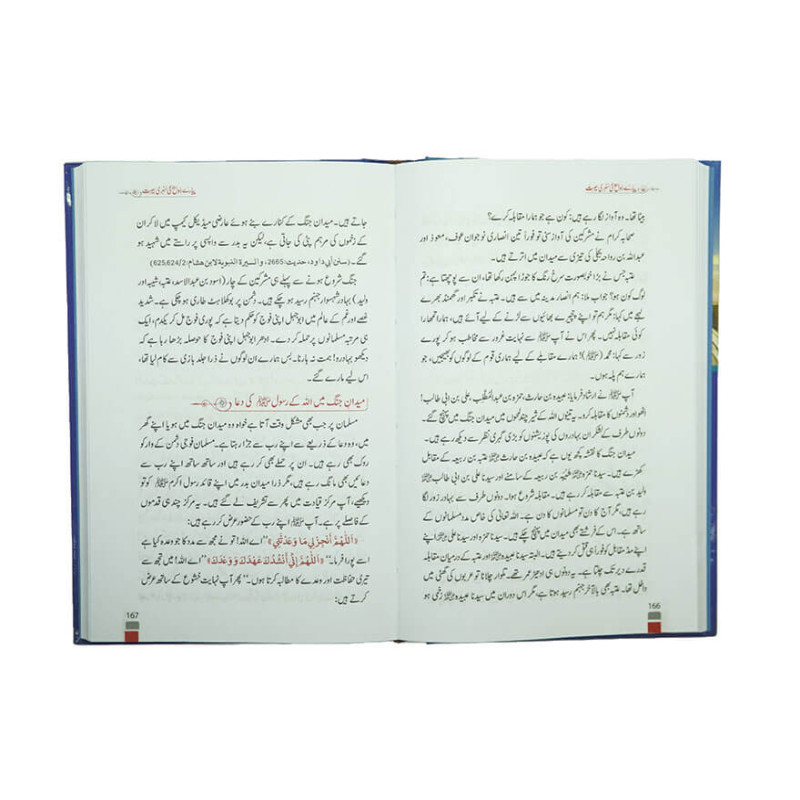 پیارے رسول ﷺ کی سنہری سیرت
بیٹا تھا۔ وہ آواز لگا رہے ہیں: کون ہے جو ہمارا مقابلہ کرے؟
صحابہ کرام نے مشرکین کی آواز سنی تو فوراً تین انصاری نوجوان عوف، معوذ اور
عبداللہ بن رواحہ بجلی کی تیزی سے میدان میں اترتے ہیں۔
عتبہ جس نے بڑا خوبصورت سرخ رنگ کا جوڑا پہن رکھا تھا، ان سے پوچھتا ہے: تم
لوگ کون ہو؟ جواب ملا: ہم انصار مدینہ میں سے ہیں۔ عتبہ نے تکبر اور گھمنڈ بھرے
لہجے میں کہا: مگر ہم تو اپنے چچیرے بھائیوں سے لڑنے کے لیے آئے ہیں، ہمارا تمھارا
کوئی مقابلہ نہیں۔ پھر اس نے آپ ﷺ سے نہایت غرور سے مخاطب ہو کر
زور سے کہا: محمد (ﷺ)! ہمارے مقابلے کے لیے ہماری قوم کے لوگوں کو بھیجیں، جو
ہمارے ہم پلہ ہوں۔
آپ ﷺ نے ارشاد فرمایا: عبیدہ بن حارث، حمزہ بن عبدالمطلب، علی بن ابی طالب!
اٹھو اور دشمنوں کا مقابلہ کرو۔ یہ تینوں اللہ کے شیر چند لمحوں میں میدان جنگ میں پہنچ گئے۔
دونوں طرف کے لشکر ان بہادروں کی پوزیشنوں کو بڑی گہری نظر سے دیکھ رہے ہیں۔
میدان جنگ کا نقشہ کچھ یوں ہے کہ عبیدہ بن حارث عتبہ بن ربیعہ کے مقابل
کھڑے ہیں۔ سیدنا حمزہ شیبہ بن ربیعہ کے سامنے اور سیدنا علی بن ابی طالب
ولید بن عتبہ سے مقابلہ کر رہے ہیں۔ مقابلہ شروع ہوا۔ دونوں طرف سے بہادر زور لگا
رہے ہیں، مگر آج کا دن تو مسلمانوں کا دن ہے۔ اللہ تعالیٰ کی خاص مدد مسلمانوں کے
ساتھ ہے۔ اس کے فرشتے بھی میدان میں پہنچ چکے ہیں۔ سیدنا حمزہ اور سیدنا علی
اپنے مد مقابل کو فوراً ہی قتل کر دیتے ہیں۔ البتہ سیدنا عبیدہ اور عتبہ کے درمیان مقابلہ
قدرے دیر تک چلتا ہے۔ یہ دونوں ہی ادھیڑ عمر تھے۔ تلوار چلانا تو عربوں کی گھٹی میں
داخل تھا۔ عتبہ بھی بالآخر جہنم رسید ہوتا ہے، مگر اس دوران میں سیدنا عبیدہ زخمی ہو
166
پیارے رسول ﷺ کی سنہری سیرت
جاتے ہیں۔ میدان جنگ کے کنارے بنے ہوئے عارضی میڈیکل کیمپ میں لا کر ان
کے زخموں کی مرہم پٹی کی جاتی ہے، لیکن یہ بدر سے واپسی پر راستے میں شہید ہو
گئے۔ (سنن أبي داود، حديث: 2665، والسيرة النبوية لابن هشام: 625,624/2)
جنگ شروع ہونے سے پہلے ہی مشرکین کے چار (اسود بن عبدالاسد، عتبہ، شیبہ اور
ولید) بہادر شہسوار جہنم رسید ہو چکے ہیں۔ دشمن پر بوکھلاہٹ طاری ہو چکی ہے۔ شدید
غصے اور غم کے عالم میں ابوجہل اپنی فوج کو حکم دیتا ہے کہ پوری فوج مل کر یکدم، ایک
ہی مرتبہ مسلمانوں پر حملہ کر دے۔ ادھر ابوجہل اپنی فوج کا حوصلہ بڑھا رہا ہے کہ
دیکھو بہادرو! ہمت نہ ہارنا۔ بس ہمارے ان لوگوں نے ذرا جلد بازی سے کام لیا تھا،
اس لیے مارے گئے۔
میدان جنگ میں اللہ کے رسول ﷺ کی دعا
مسلمان پر جب بھی مشکل وقت آتا ہے خواہ وہ میدان جنگ میں ہو یا اپنے گھر
میں، وہ دعا کے ذریعے سے اپنے رب سے جڑا رہتا ہے۔ مسلمان فوجی دشمن کے وار کو
روک بھی رہے ہیں۔ ان پر حملے بھی کر رہے ہیں اور ساتھ ساتھ اپنے رب سے
دعائیں بھی مانگ رہے ہیں، مگر ذرا میدان بدر میں اپنے قائد رسول اکرم ﷺ کو تو
دیکھیے، آپ مرکز قیادت میں پھر سے تشریف لے گئے ہیں۔ یہ مرکز چند ہی قدموں
کے فاصلے پر ہے۔ آپ ﷺ اپنے رب کے حضور عرض کر رہے ہیں:
«اَللّٰهُمَّ أَنْجِزْ لِي مَا وَعَدْتَنِي» ''اے اللہ! تو نے مجھ سے مدد کا جو وعدہ کیا ہے
اسے پورا فرما۔'' «اَللّٰهُمَّ إِنِّي أَنْشُدُكَ عَهْدَكَ وَوَعْدَكَ» ''اے اللہ! میں تجھ سے
تیری حفاظت اور وعدے کا مطالبہ کرتا ہوں۔'' پھر آپ نہایت خشوع کے ساتھ عرض
کرتے ہیں:
167